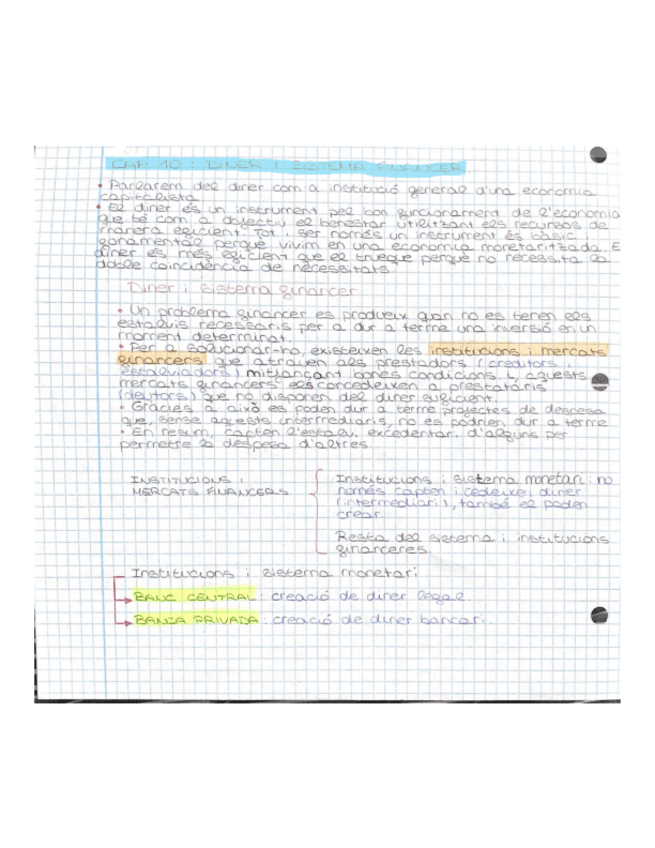 CAP 10: DINER I SISTEMA FINANCER
• Parlarem del diner com a institució general d'una economia
capitalista
• El diner és un instrument pel bon funcionament de l'economia
que té com a objectiu el benestar utilitzant els recursos de
manera eficient. Tot i ser només un instrument és bàsic i
fonamental perquè vivim en una economia monetaritzada. El
diner és més eficient que el trueque perquè no necessita la
doble coincidència de necessitats.
Diner i sistema financer
• Un problema financer es produeix quan no es tenen els
estalvis necessaris per a dur a terme una inversió en un
moment determinat.
• Per a solucionar-ho, existeixen les institucions i mercats
financers que atrauen als prestadors (creditors i
estalviadors) mitjançant bones condicions i, aquests
mercats financers els concedeixen a prestataris
(deutors) que no disponen del diner suficient.
• Gràcies a això es poden dur a terme projectes de despesa
que, sense aquests intermediaris, no es podrien dur a terme
• En resum, capten l'estalvi excedentari d'alguns per
permetre la despesa d'altres.
INSTITUCIONS I
MERCATS FINANCERS
Institucions i sistema monetari: no
només capten i cedeixen diner
(intermediari), també el poden
crear.
Resta del sistema i institucions
financeres.
Institucions i sistema monetari
BANC CENTRAL: creació de diner legal.
BANCA PRIVADA: creació de diner bancari.